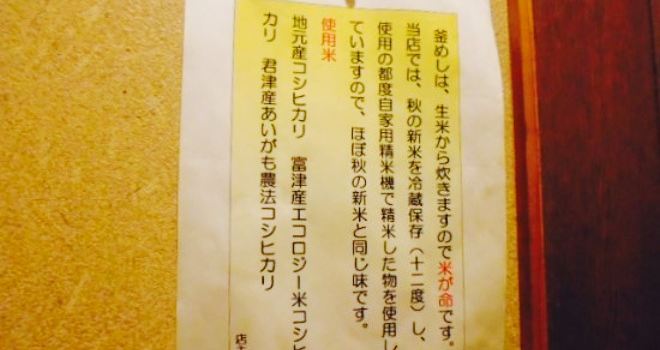 釜めしは、生米から炊きますので米が命です。
当店では、秋の新米を冷蔵保存(十二度)し、
使用の都度自家用精米機で精米した物を使用し
ていますので、ほぼ秋の新米と同じ味です。
使用米
地元産コシヒカリ 富津産エコロジー米コシヒ
カリ 君津産あいがも農法コシヒカリ
店